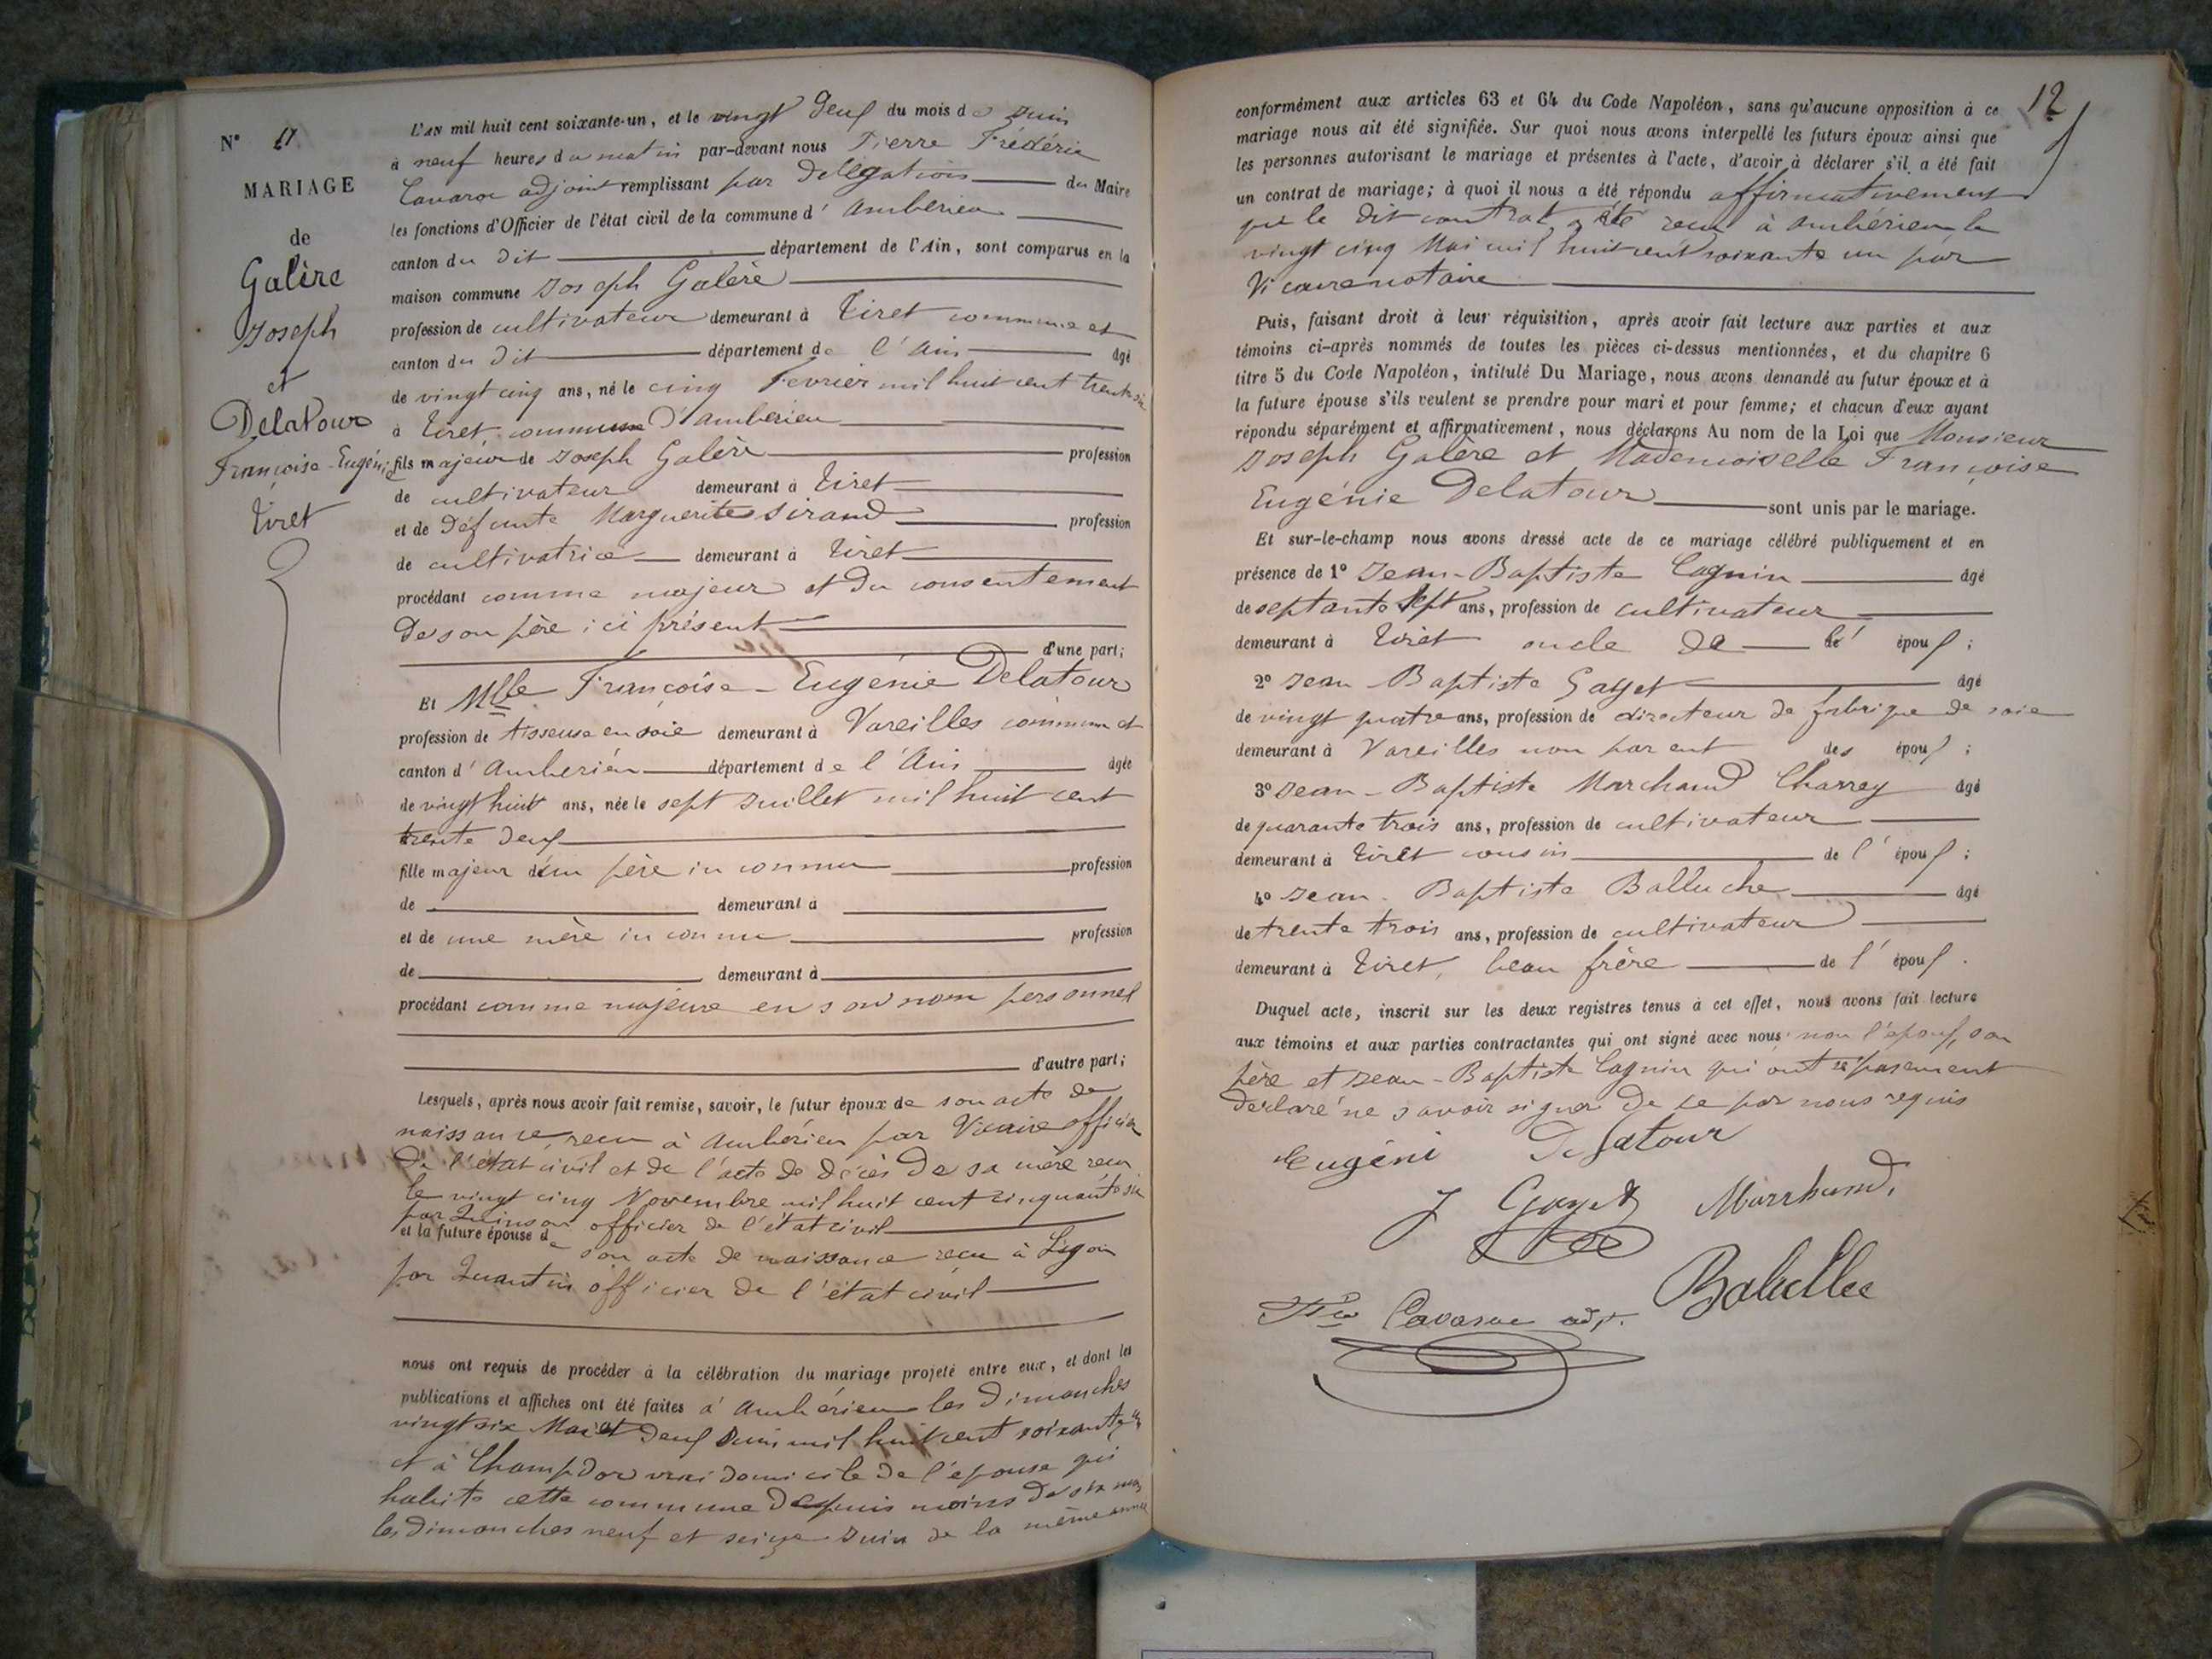 N° 17
MARIAGE
de
Galère
Joseph
et
Delatour
Françoise-Eugénie
Tiret
L'AN mil huit cent soixante-un, et le vingt deux du mois de Juin
à neuf heures du matin par-devant nous Pierre Frédéric
Cavaroc adjoint remplissant par délégation du Maire
les fonctions d'Officier de l'état civil de la commune d'Ambérieu
canton du dit département de l'Ain, sont comparus en la
maison commune Joseph Galère
profession de cultivateur demeurant à Tiret commune et
canton du dit département de l'Ain âgé
de vingt cinq ans, né le cinq Fevrier mil huit cent trente six
à Tiret, commune d'Ambérieu
fils majeur de Joseph Galère profession
de cultivateur demeurant à Tiret
et de défunte Marguerite Sirand profession
de cultivatrice demeurant à Tiret
procédant comme majeur et du consentement
de son père ici présent
d'une part;
Et Mlle Françoise-Eugénie Delatour
profession de tisseuse en soie demeurant à Vareilles commune et
canton d'Ambérieu département de l'Ain âgée
de vingt huit ans, née le sept Juillet mil huit cent
trente deux
fille majeur d'un père inconnu profession
de demeurant à
et de une mère inconnue profession
de demeurant à
procédant comme majeure en son nom personnel
d'autre part;
Lesquels, après nous avoir fait remise, savoir, le futur époux de son acte de
naissance, recu à Ambérieu par Vicaire officier
de l'état civil et de l'acte de décès de sa mère recu
le vingt cinq Novembre mil huit cent cinquante six
par Quinson officier de l'état civil
et la future épouse de son acte de naissance recu à
par Quantin officier de l'état civil
nous ont requis de procéder à la célébration du mariage projeté entre eux, et dont les
publications et affiches ont été faites à Ambérieu les Dimanches
vingt six Mai et deux Juin mil huit cent soixante un
et à Champdor vrai domicile de l'épouse qui
habite cette commune depuis moins de six mois
les dimanches neuf et seize Juin de la même année
12
conformément aux articles 63 et 64 du Code Napoléon, sans qu'aucune opposition à ce
mariage nous ait été signifiée. Sur quoi nous avons interpellé les futurs époux ainsi que
les personnes autorisant le mariage et présentes à l'acte, d'avoir à déclarer s'il a été fait
un contrat de mariage; à quoi il nous a été répondu affirmativement
que le dit contrat a été recu à Ambérieu le
vingt cinq Mai mil huit cent soixante un par
Vicaire notaire
Puis, faisant droit à leur réquisition, après avoir fait lecture aux parties et aux
témoins ci-après nommés de toutes les pièces ci-dessus mentionnées, et du chapitre 6
titre 5 du Code Napoléon, intitulé Du Mariage, nous avons demandé au futur époux et à
la future épouse s'ils veulent se prendre pour mari et pour femme; et chacun d'eux ayant
répondu séparément et affirmativement, nous déclarons Au nom de la Loi que Monsieur
Joseph Galère et Mademoiselle Françoise
Eugénie Delatour sont unis par le mariage.
Et sur-le-champ nous avons dressé acte de ce mariage célébré publiquement et en
présence de 1° Jean-Baptiste Cagnin âgé
de septante sept ans, profession de cultivateur
demeurant à Tiret oncle de l' époux;
2° Jean-Baptiste Gayet âgé
de vingt quatre ans, profession de directeur de fabrique de soie
demeurant à Vareilles non parent des époux;
3° Jean-Baptiste Marchand Charrey âgé
de quarante trois ans, profession de cultivateur
demeurant à Tiret cousin de l'époux;
4° Jean-Baptiste Balluche âgé
de trente trois ans, profession de cultivateur
demeurant à Tiret, beau frère de l'époux.
Duquel acte, inscrit sur les deux registres tenus à cet effet, nous avons fait lecture
aux témoins et aux parties contractantes qui ont signé avec nous non l'époux, son
père et Jean-Baptiste Cagnin qui ont séparement
déclaré ne savoir signer de ce par nous requis
Eugéni Delatour
J Gayet Marchand
Cavaroc adj.